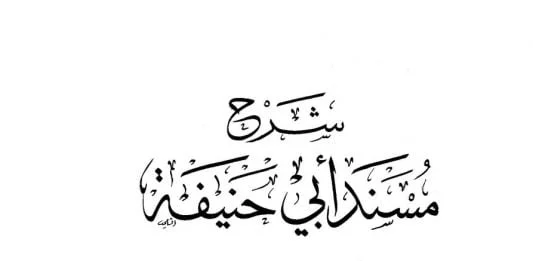 شرح
مسند أبي حنيفة